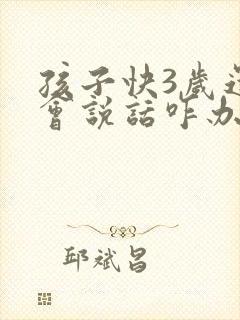 孩子快3歲
會說話咋办
邱斌昌